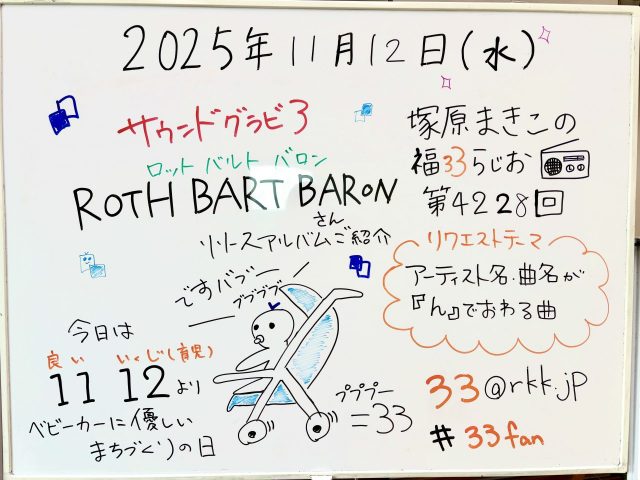 2025年11月12日(水)
サウンドグラビ3
ロットバルトバロン
ROTH BART BARON
さん
リリースアルバムご紹介
ですバブー
ブブブブ
塚原まきこの
福33らじお
第4228回
リクエストテーマ
アーティスト名・曲名が
『ん』でおわる曲
今日は
良い いくじ(育児)
11 12より
ベビーカーに優しい
まちづくりの日
プププー
=33
33@rkk.jp
#33fan